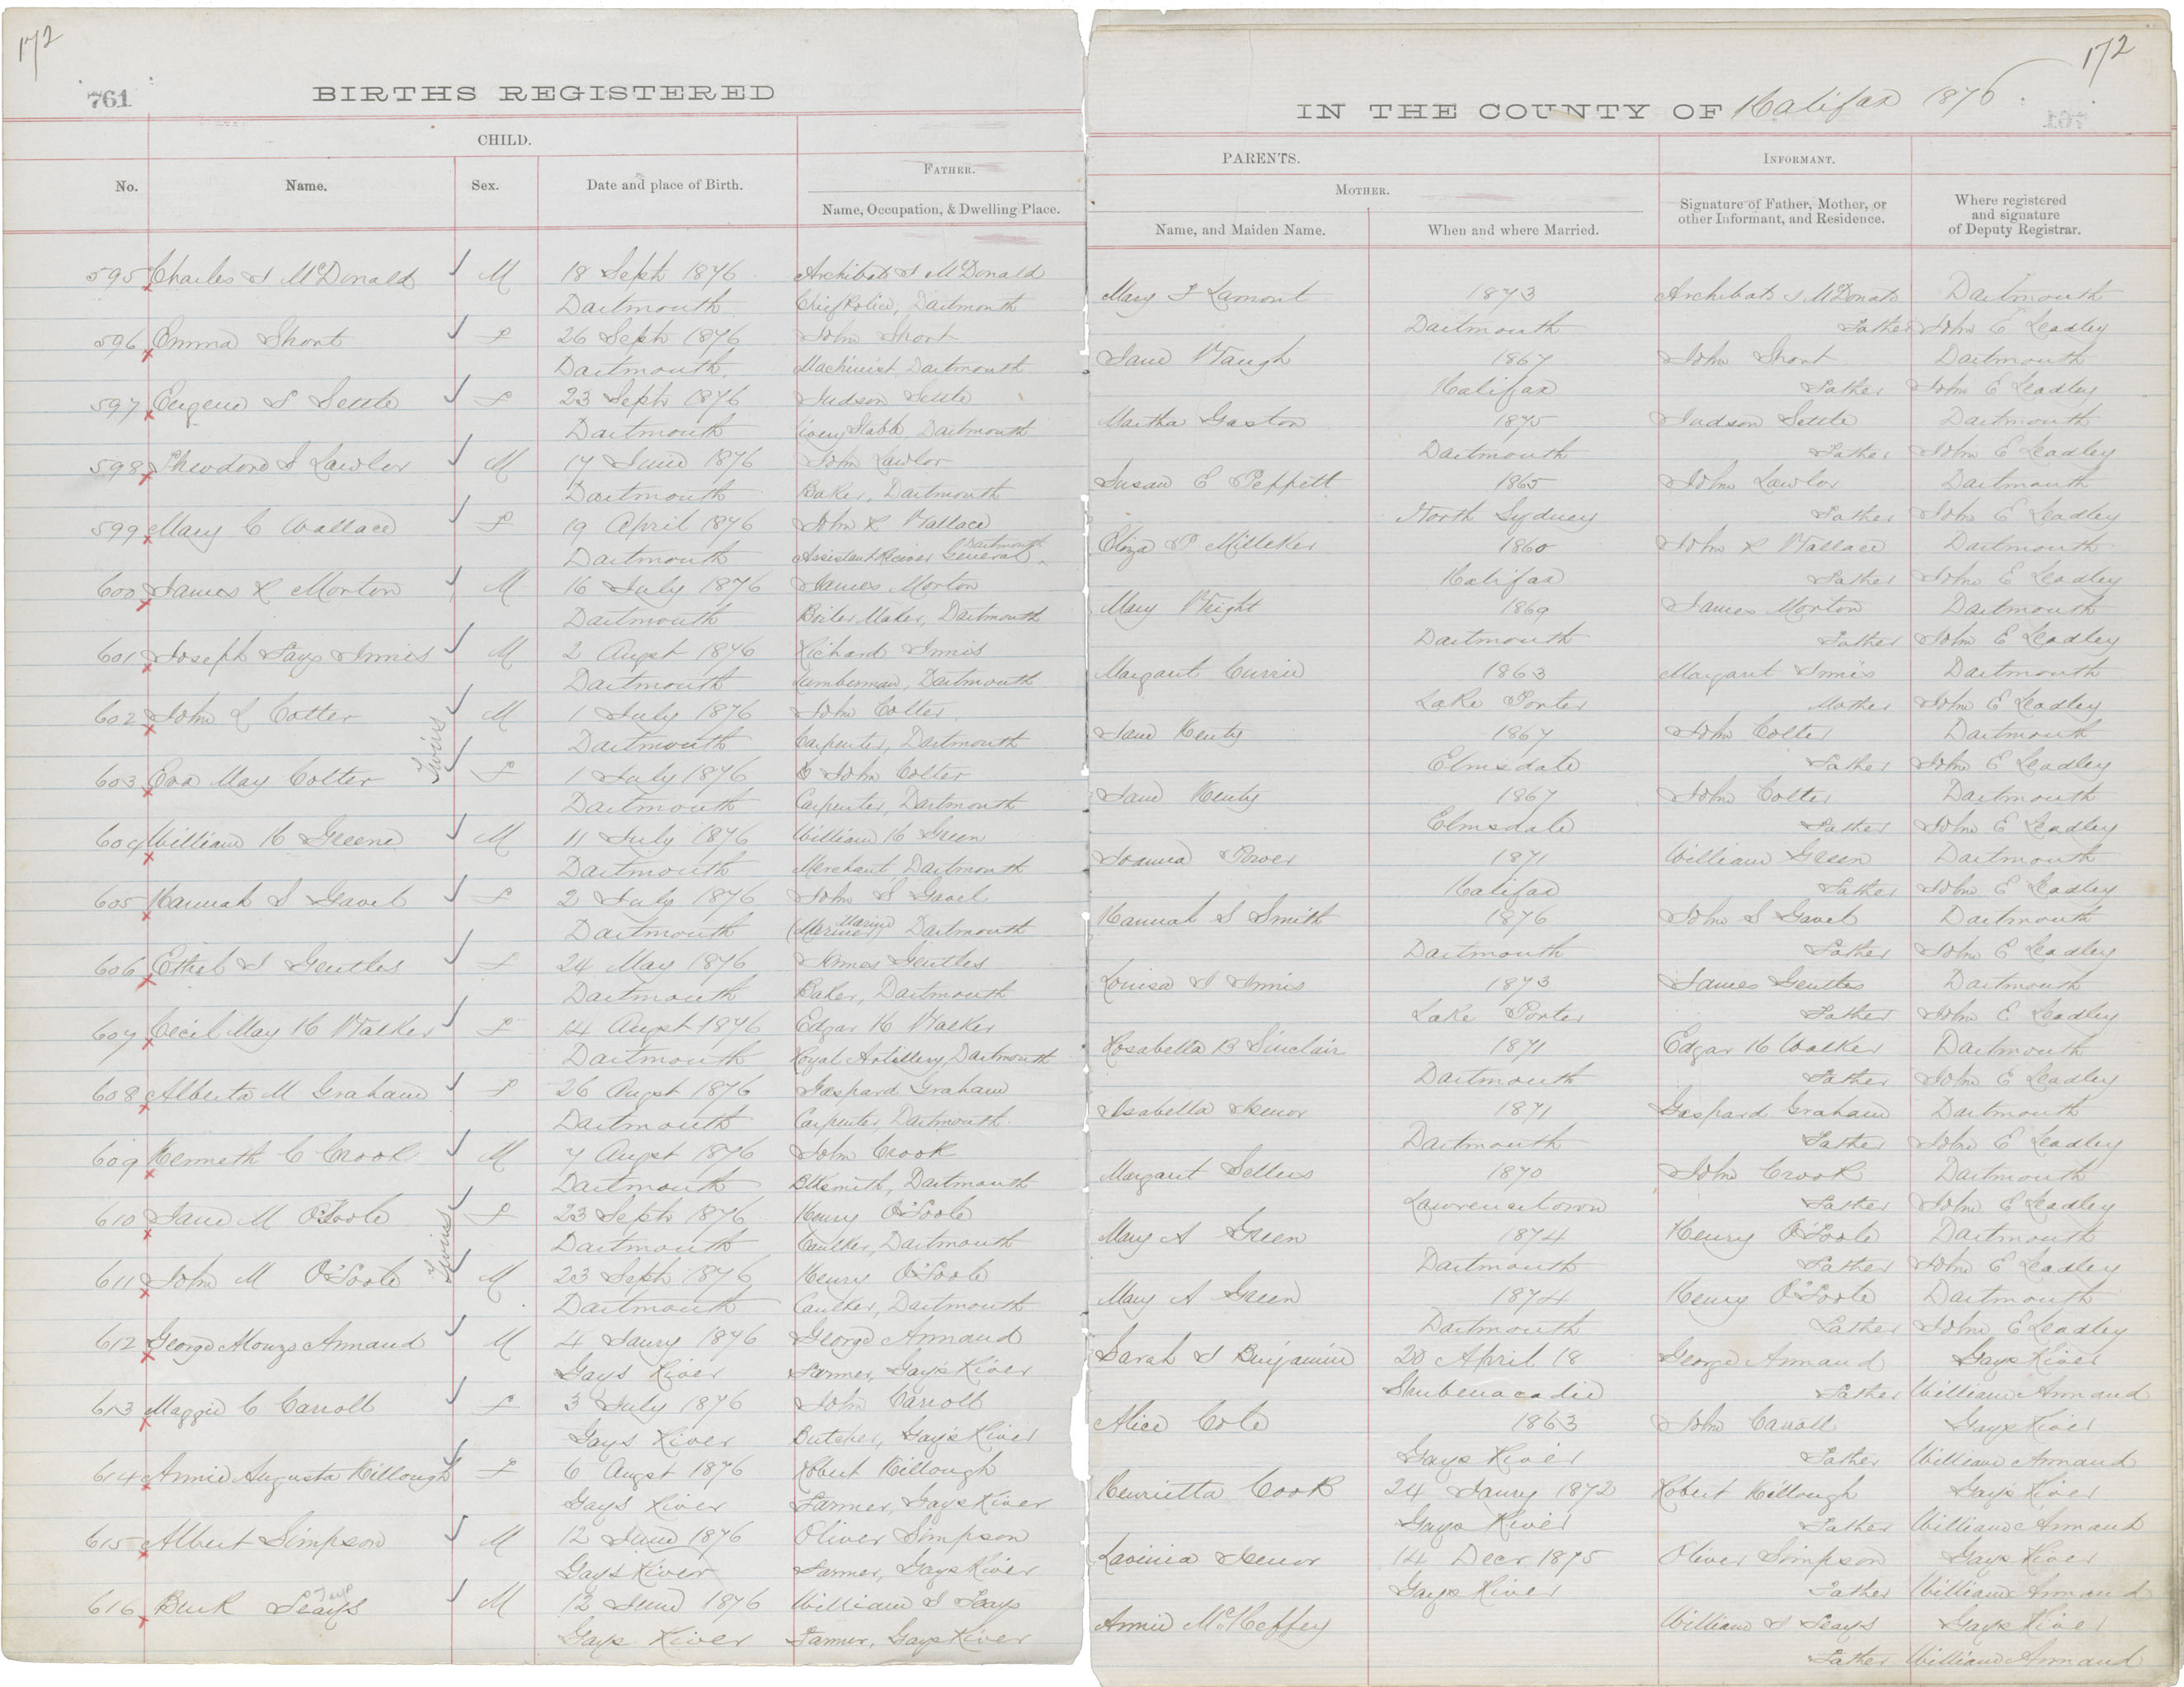 172
172
761
BIRTHS REGISTERED
IN THE COUNTY OF Halifax 1876
CHILD.
PARENTS.
INFORMANT.
No.
Name.
Sex.
Date and place of Birth.
FATHER.
Name, Occupation, & Dwelling Place.
MOTHER.
Name, and Maiden Name.
When and where Married.
Signature of Father, Mother, or other Informant, and Residence.
Where registered and signature of Deputy Registrar.
595 Charles J McDonald M 18 Sept 1876 Archibald J McDonald Mary J Lamont 1873 Archibald J McDonald Dartmouth
Dartmouth Chief Police, Dartmouth Dartmouth Father John E Leadley
596 Emma Short F 26 Sept 1876 John Short Jane Waugh 1867 John Short Dartmouth
Dartmouth. Machinist Dartmouth Halifax Father John E Leadley
597 Eugene S Settle F 23 Sept 1876 Judson Settle Martha Gaston 1875 Judson Settle Dartmouth
Dartmouth Livery Stable Dartmouth Dartmouth Father John E Leadley
598 Theodore J Lawlor M 17 June 1876 John Lawlor Susan E Peppett 1865 John Lawlor Dartmouth
Dartmouth Baker, Dartmouth North Sydney Father John E Leadley
599 Mary C Wallace F 19 April 1876 John R Wallace Eliza P Milleker 1860 John R Wallace Dartmouth
Dartmouth Assistant Receiver General Dartmouth Halifax Father John E Leadley
600 James R Morton M 16 July 1876 James Morton Mary Wright 1869 James Morton Dartmouth
Dartmouth Boiler Maker, Dartmouth Dartmouth Father John E Leadley
601 Joseph Fays Innis M 2 Augst 1876 Richard Innis Margaret Currie 1863 Margaret Innis Dartmouth
Dartmouth Lumberman, Dartmouth Lake Porter Mother John E Leadley
602 John L Colter Twins M 1 July 1876 John Colter Jane Kenty 1867 John Colter Dartmouth
Dartmouth Carpenter, Dartmouth Elmsdale Father John E Leadley
603 Eva May Colter F 1 July 1876 John Colter Jane Kenty 1867 John Colter Dartmouth
Dartmouth Carpenter, Dartmouth Elmsdale Father John E Leadley
604 William H Greene M 11 July 1876 William H Green Joanna Power 1871 William Green Dartmouth
Dartmouth Merchant Dartmouth Halifax Father John E Leadley
605 Hannah S Gavel F 2 July 1876 John S Gavel Hannah S Smith 1876 John S Gavel Dartmouth
Dartmouth (Mariner) Dartmouth Dartmouth Father John E Leadley
606 Ethel J Gentles F 24 May 1876 James Gentles Louisa J Innis 1873 James Gentles Dartmouth
Dartmouth Baker, Dartmouth Lake Porter Father John E Leadley
607 Cecil May H Walker F 14 Augst 1876 Edgar H Walker Rosabella B Sinclair 1871 Edgar H Walker Dartmouth
Dartmouth Royal Artillery, Dartmouth Dartmouth Father John E Leadley
608 Alberta M Graham F 26 Augst 1876 Gaspard Graham Isabella Isenor 1871 Gaspard Graham Dartmouth
Dartmouth Carpenter, Dartmouth Dartmouth Father John E Leadley
609 Kenneth C Crook M 7 Augst 1876 John Crook Margaret Sellers 1870 John Crook Dartmouth
Dartmouth Blksmith, Dartmouth Lawrencetown Father John E Leadley
610 Jane M O'Toole Twins F 23 Sept 1876 Henry O'Toole Mary A Green 1874 Henry O'Toole Dartmouth
Dartmouth Caulker, Dartmouth Dartmouth Father John E Leadley
611 John M O'Toole M 23 Sept 1876 Henry O'Toole Mary A Green 1874 Henry O'Toole Dartmouth
Dartmouth Caulker, Dartmouth Dartmouth Father John E Leadley
612 George Alonzo Annand M 4 Jany 1876 George Annand Sarah J Benjamin 20 April 18 George Annand Gays River
Gays River Farmer, Gay's River Shubenacadie Father William Annand
613 Maggie C Carroll F 3 July 1876 John Carroll Alice Cole 1863 John Carroll Gays River
Gays River Butcher, Gay's River Gays River Father William Annand
614 Annie Augusta Killough F 6 Augst 1876 Robert Killough Henrietta Cook 24 Jany 1872 Robert Killough Gays River
Gays River Farmer, Gays River Gays River Father William Annand
615 Albert Simpson M 12 June 1876 Oliver Simpson Lavinia Isenor 14 Decr 1875 Oliver Simpson Gays River
Gays River Farmer, Gays River Gays River Father William Annand
616 Burk M 12 June 1876 William J Fays Annie McHeffey William J Gays River
Gays River Farmer, Gays River Father William Annand